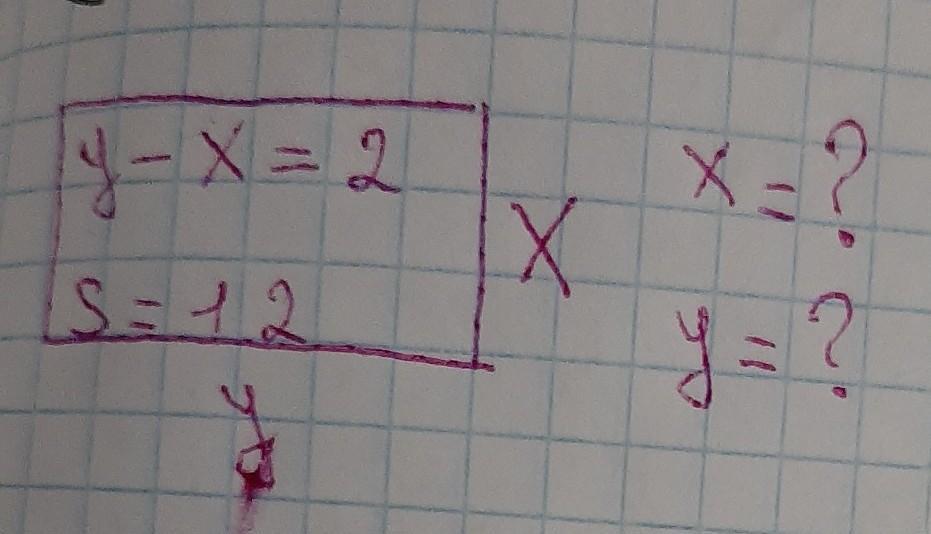 y - x = 2
S = 12
x
y
x = ?
y = ?